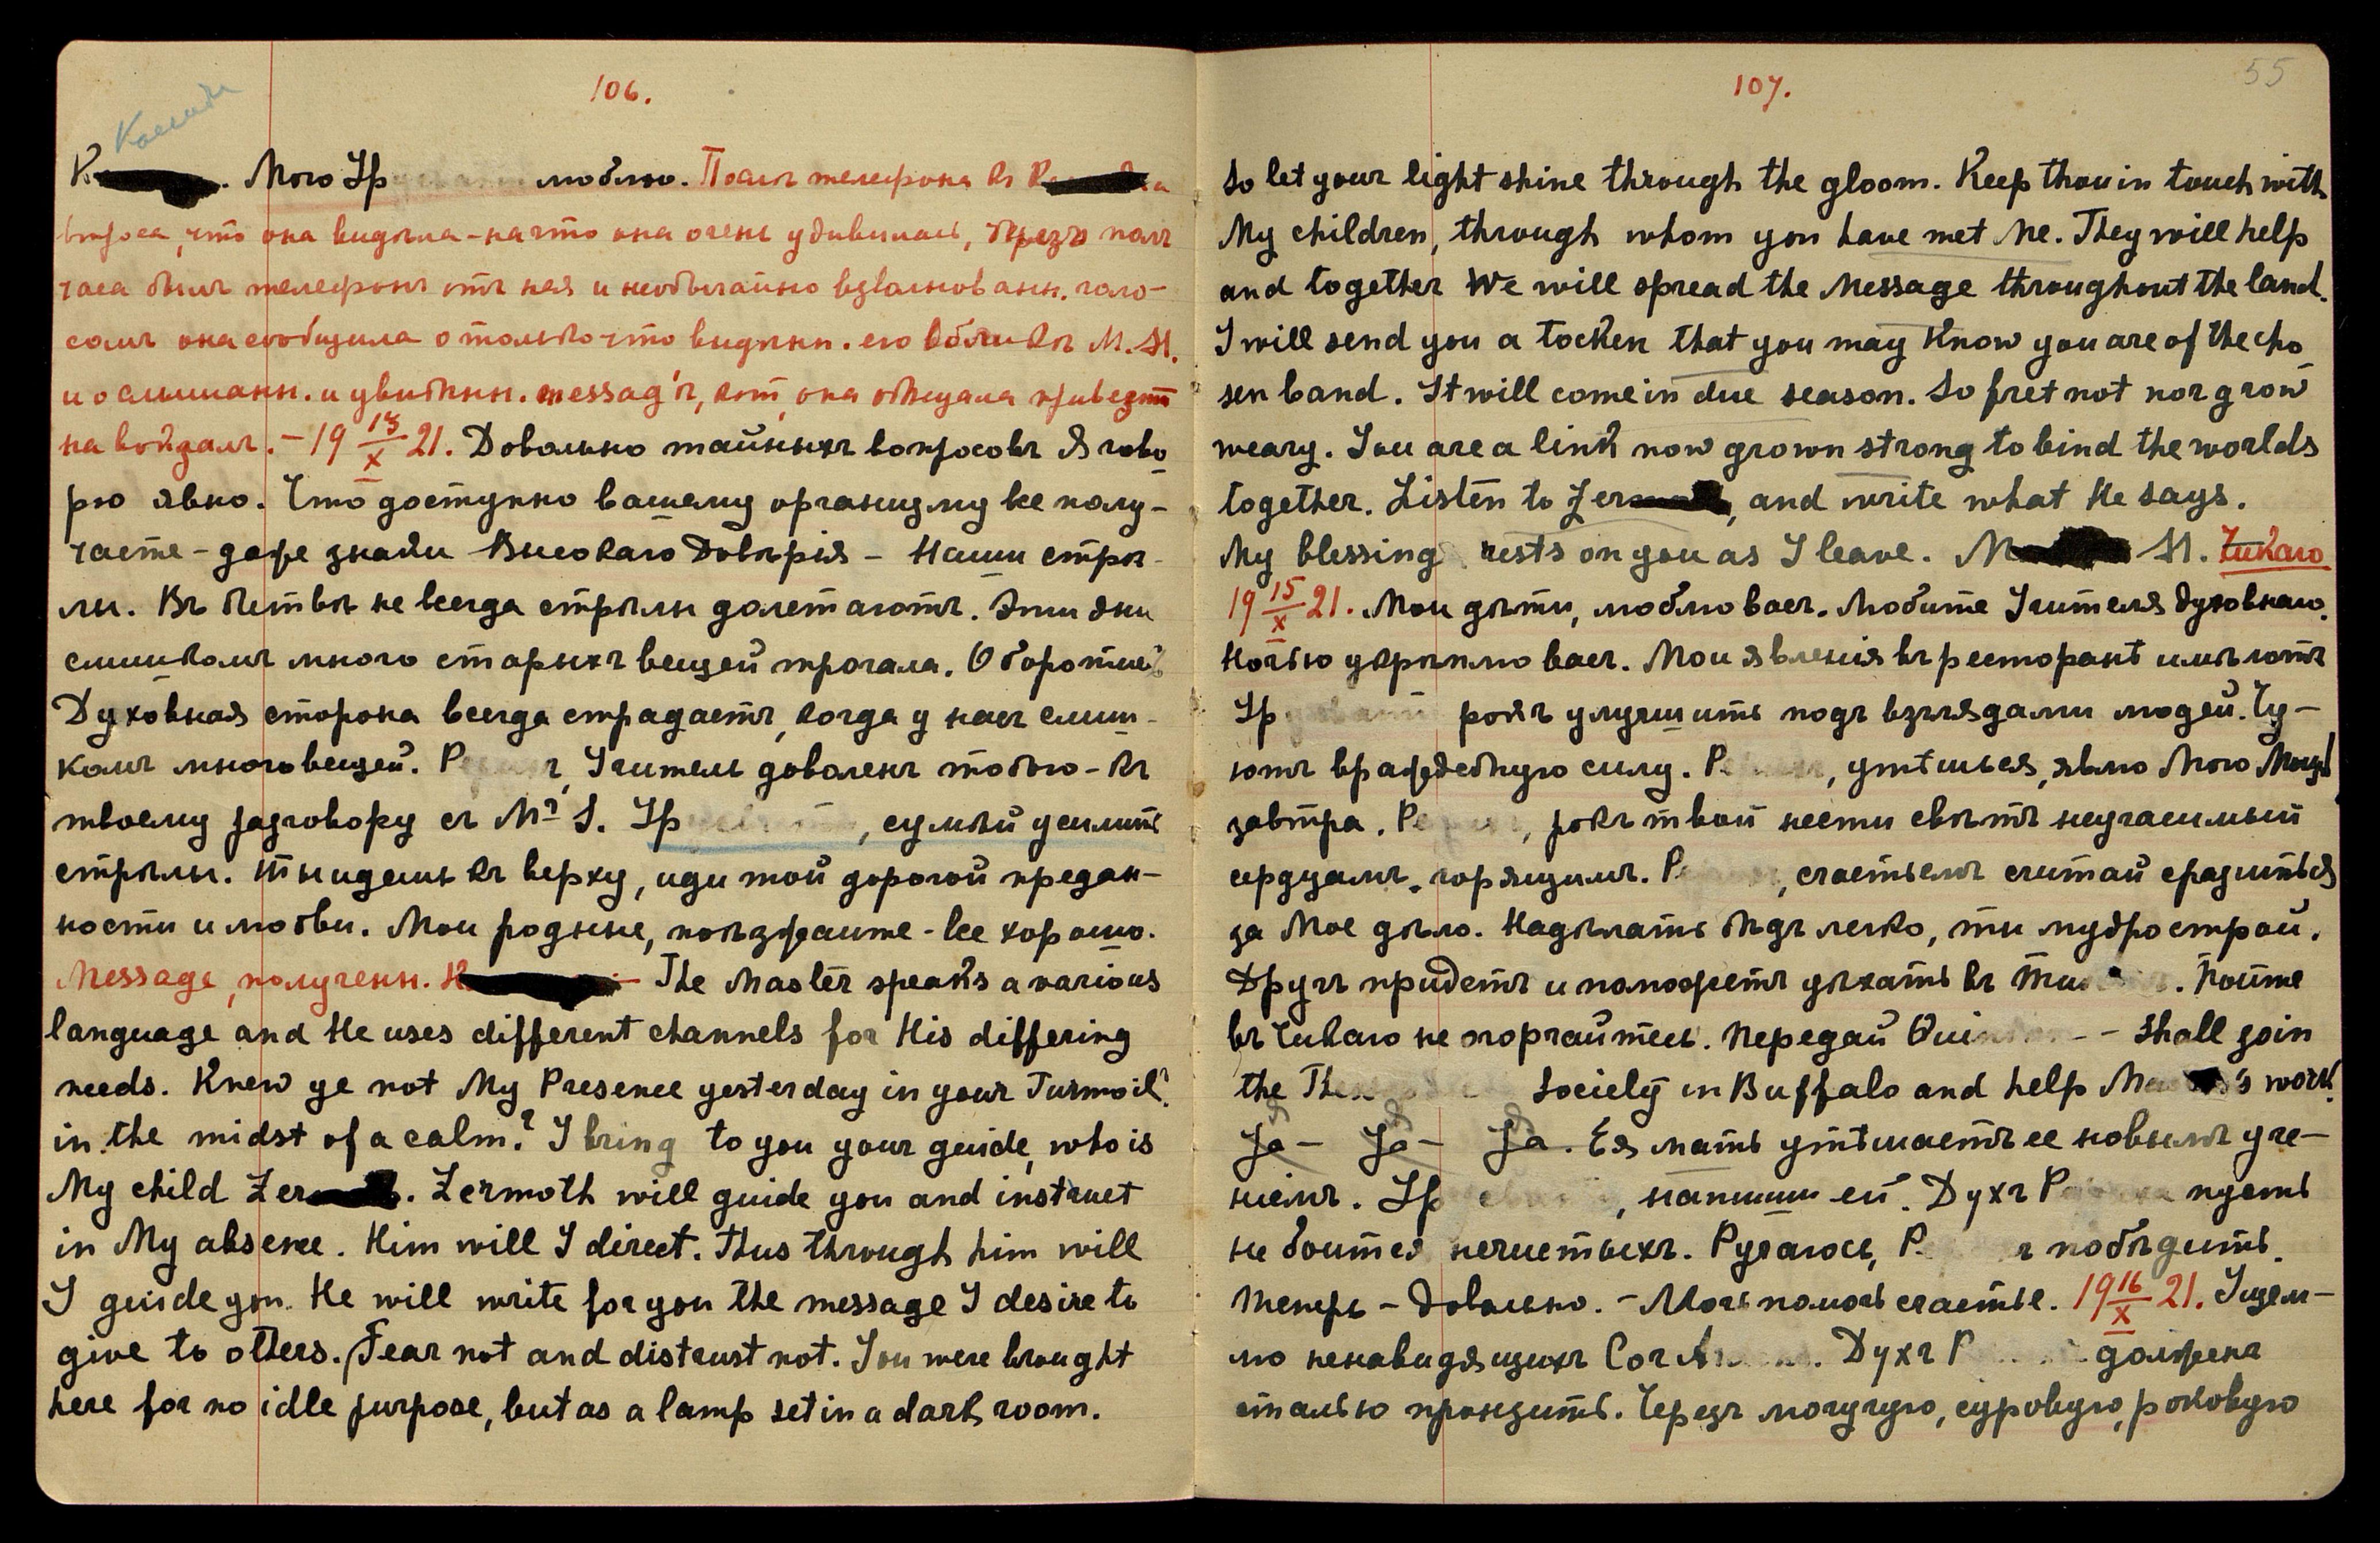 106.
К . Мою Ур люблю. Послѣ телефона къ
вопроса, что она видѣла - на что она очень удивилась, черезъ пол
часа былъ телефонъ отъ нея и необычайно взволнованн. голо-
сомъ она сообщила о только что видѣнн. его обликѣ М. М.
и о слышанн. и увидѣнн. messag'ѣ, кот. она обѣщала привезти
на вокзалъ. - 19 13/X 21. Довольно тайныхъ вопросовъ Я гово
рю явно. Что доступно вашему организму все полу-
чаете - даже знаки Высокаго Довѣрія - Наши стрѣ-
лы. Въ битвѣ не всегда стрѣлы долетаютъ. Эти дни
слишкомъ много старыхъ вещей трогала.
Духовная сторона всегда страдаетъ, когда у насъ слиш-
комъ много вещей. Р , Учитель доволенъ тобою - къ
твоему разговору съ Mr S. Ур , сумѣй усилить
стрѣлы. Ты идешь къ верху, иди той дорогой предан-
ности и любви. Мои родные, поѣзжайте - все хорошо.
Message, полученн. The Master speaks a various
language and He uses different channels for His differing
needs. Knew ye not My Presence yesterday in your Turmoil?
in the midst of a calm? I bring to you your guide, who is
My child Zer . Zermoth will guide you and instruct
in My absence. Him will I direct. Thus through him will
I guide you. He will write for you the message I desire to
give to others. Fear not and distrust not. You were brought
here for no idle purpose, but as a lamp set in a dark room.
107.
55
So let your light shine through the gloom. Keep thou in touch with
My children, through whom you have met Me. They will help
and together We will spread the Message throughout the land.
I will send you a tocken that you may know you are of the cho
sen band. It will come in due season. So fret not nor grow
weary. You are a link now grown strong to bind the worlds
together. Listen to Zer , and write what He says.
My blessing rests on you as I leave. M M. Чикаго
19 15/X 21. Мои дѣти, люблю васъ. Любите Учителя духовнаго.
Ночью укрѣплю васъ. Мои явленія въ ресторанѣ имѣютъ
Ур рокъ улучшить подъ взглядами людей. Чу-
ютъ враждебную силу. Р , утѣшься, явлю Мою Мощь
завтра. Р , рокъ твой нести свѣтъ неугасимый
сердцамъ горящимъ. Р , счастьемъ считай сразиться
за Мое дѣло. Надѣлать бѣдъ легко, ты мудро строй.
Другъ придетъ и поможетъ уѣхать въ . Пойте
въ Чикаго не огорчайтесь. Передай - - Shall join
the Society in Buffalo and help M 's work.
Ja - Ja - Ja. Ея мать утѣшаетъ ее новымъ уче-
ніемъ. Ур , напиши ей. Духъ Р пусть
не боится нечистыхъ. Ручаюсь, Р побѣдить.
Теперь - довольно. - Мочь помочь счастье. 19 16/X 21. Ущем-
лю ненавидящихъ Cor A . Духъ Р долженъ
сталью пронзить. Черезъ могучую, суровую, роковую